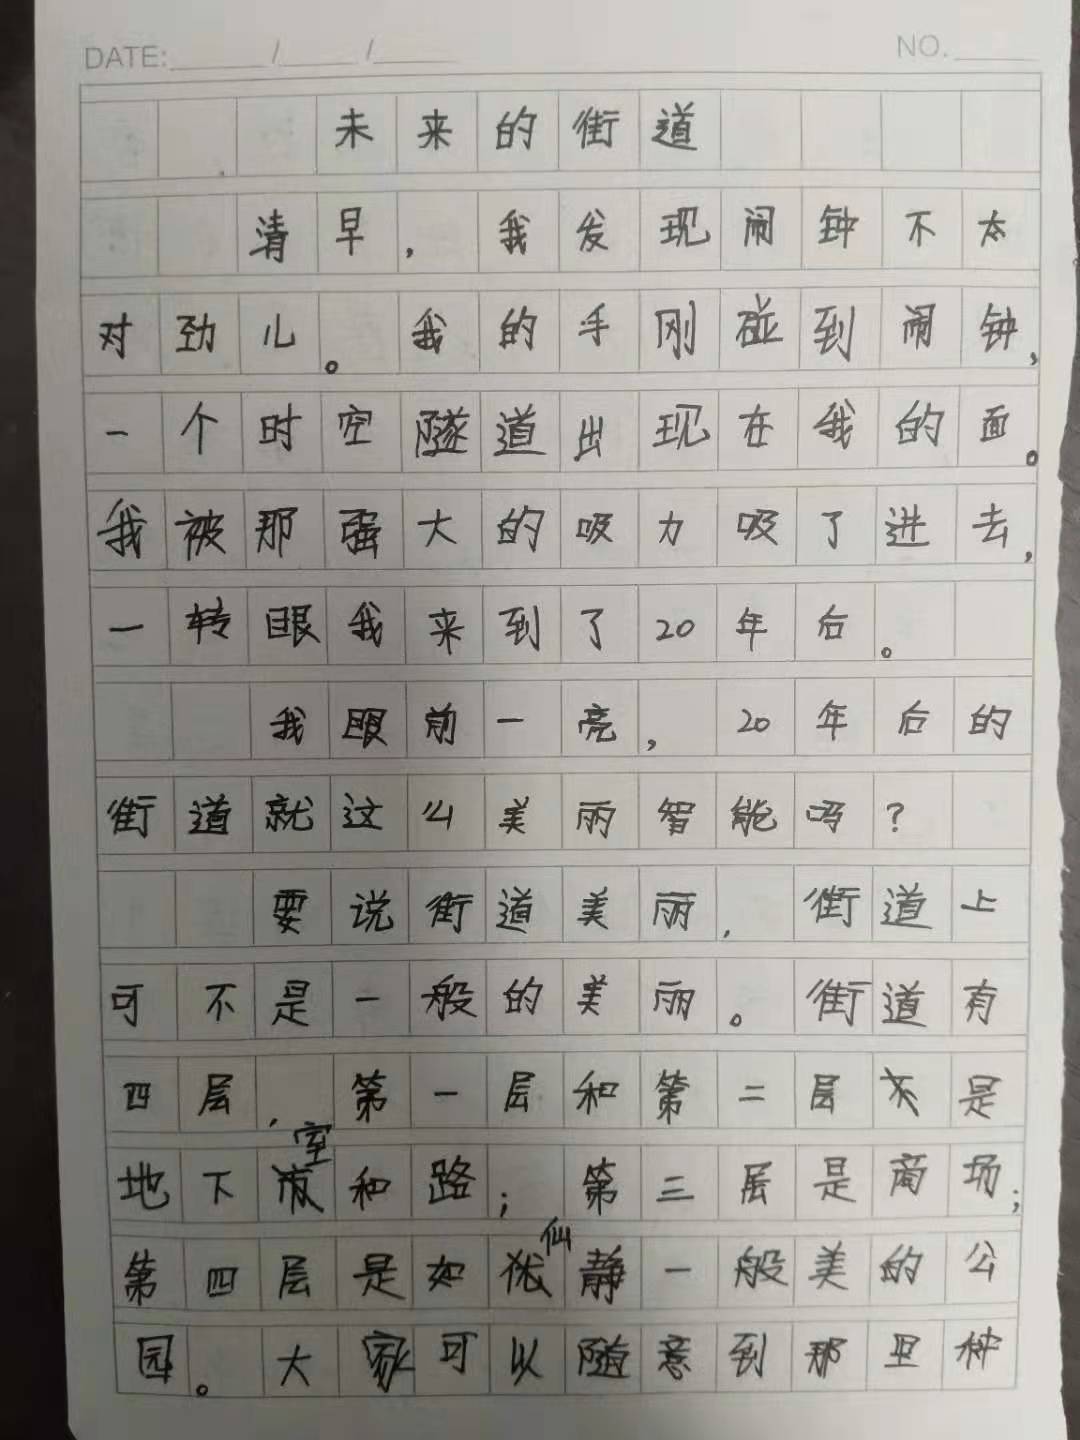 DATE: / /
NO.
未来的街道
清早,我发现闹钟不太
对劲儿。我的手刚碰到闹钟,
一个时空隧道出现在我的面。
我被那强大的吸力吸了进去,
一转眼我来到了20年后。
我眼前一亮,20年后的
街道就这么美丽智能吗?
要说街道美丽,街道上
可不是一般的美丽。街道有
四层,第一层和第二层是
地下室和路;第三层是商场;
第四层是如仙静一般美的公
园。大家可以随意到那里种